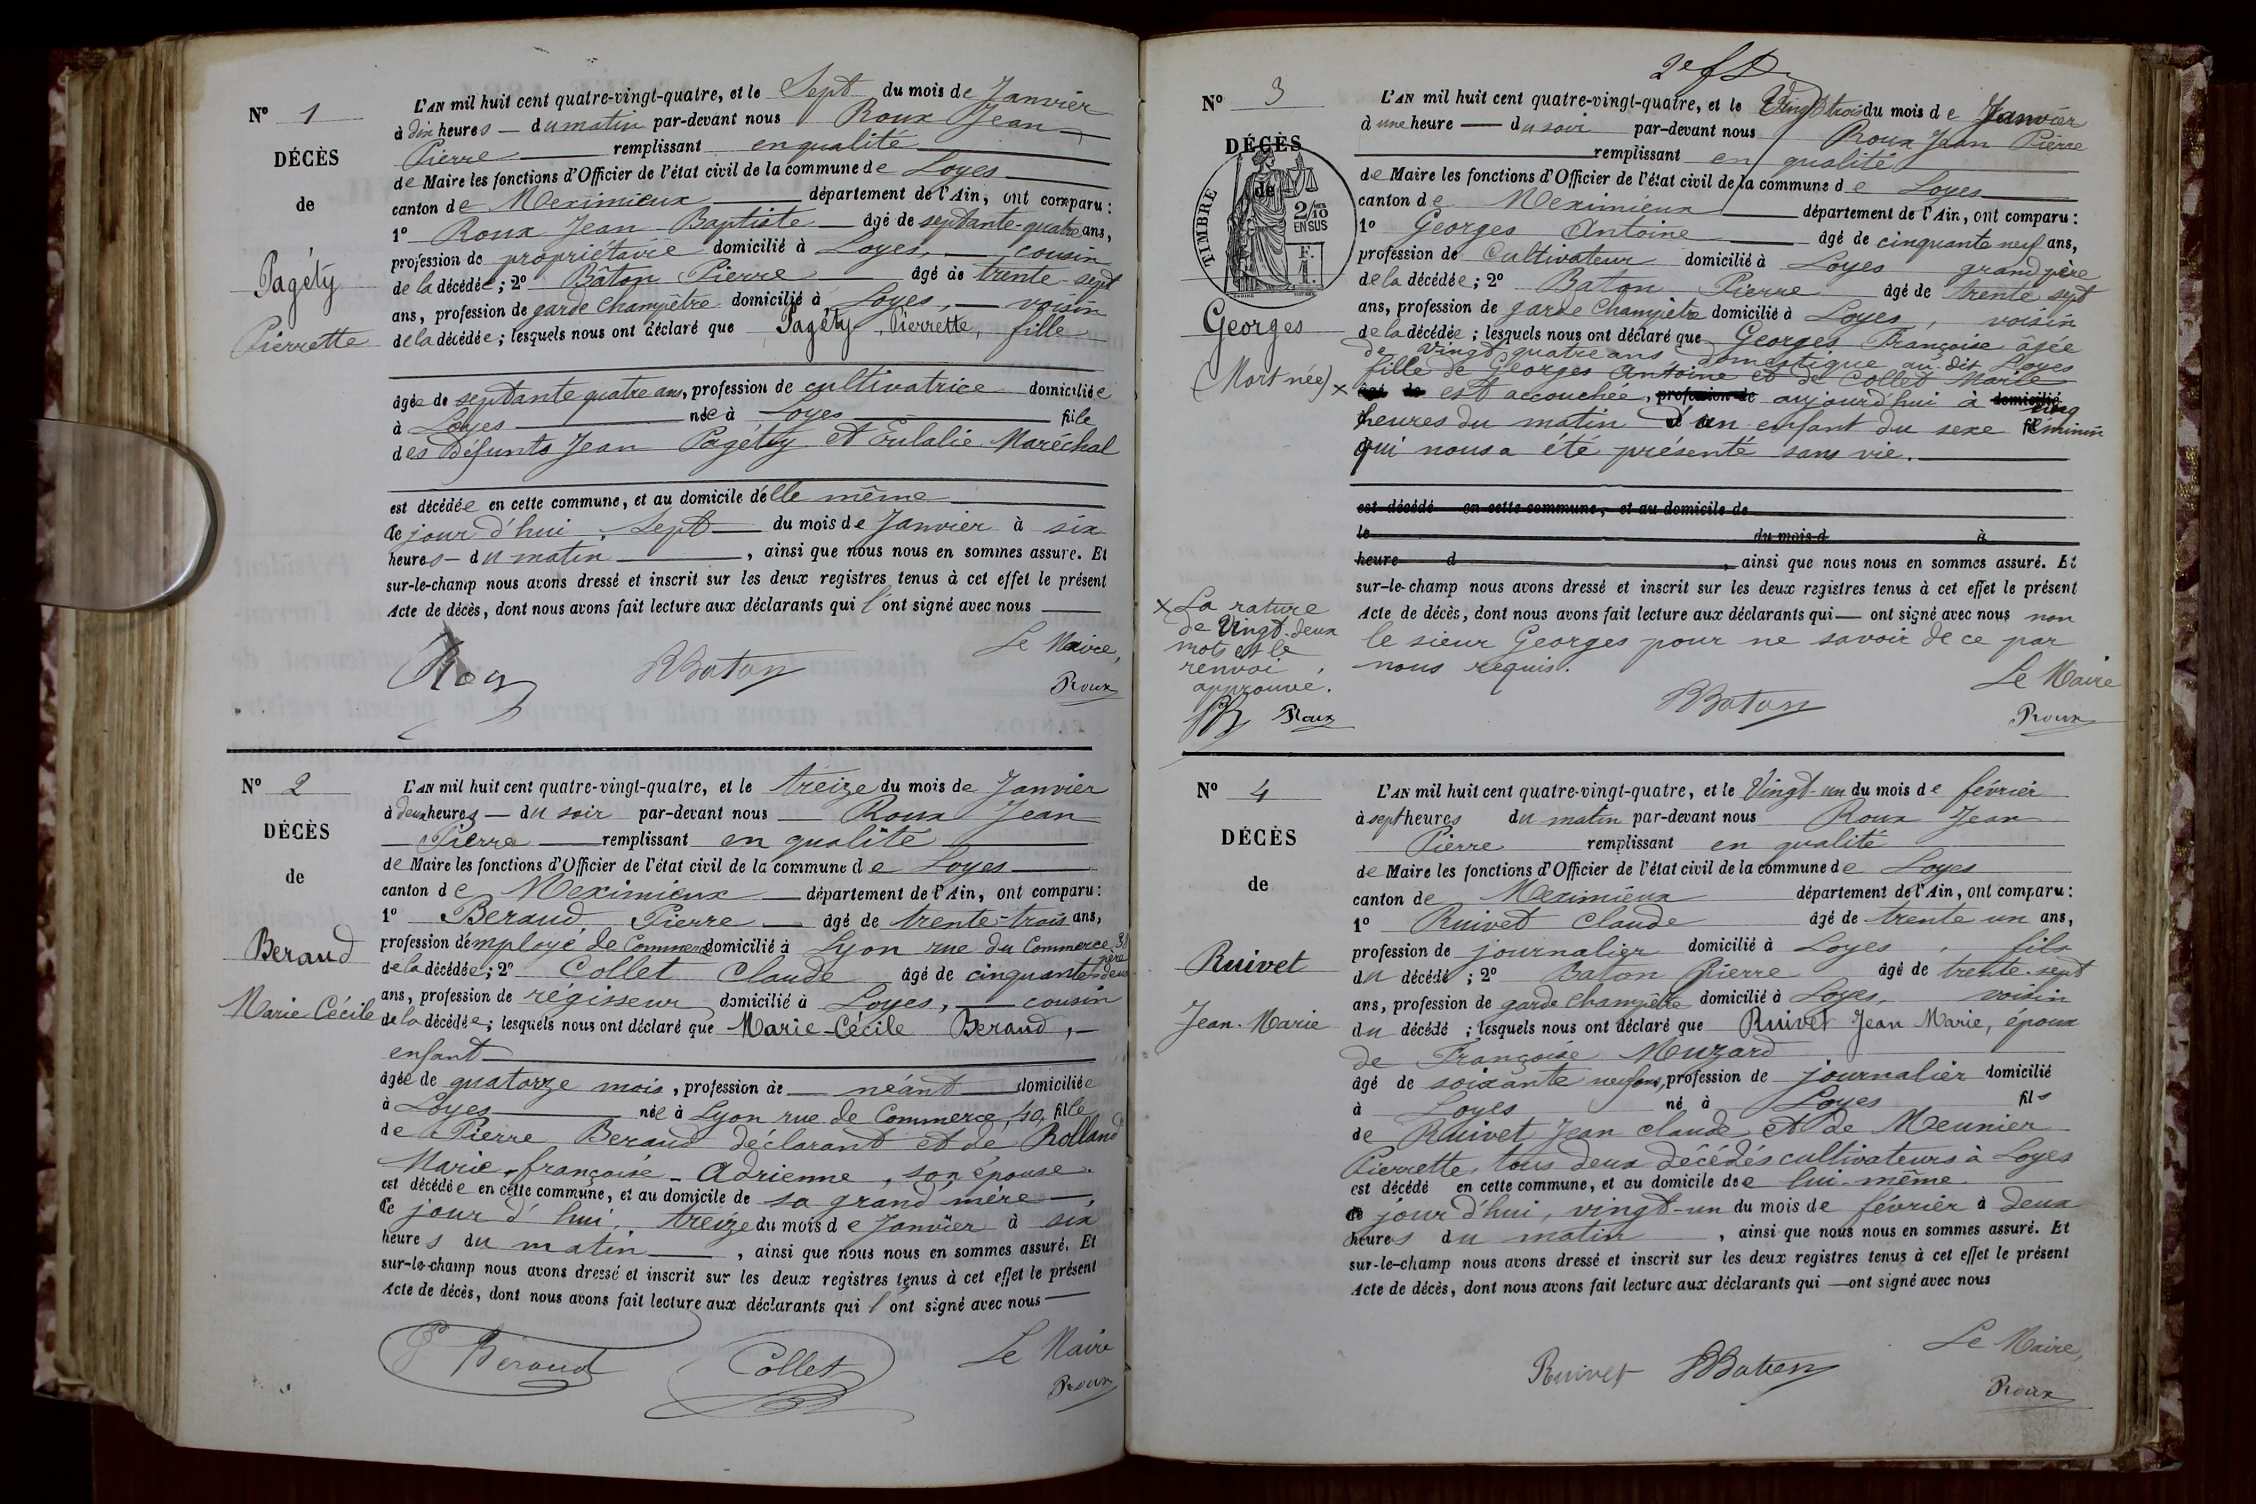 N° 1
DÉCÈS
de
Pagéty
Pierrette
L'AN mil huit cent quatre-vingt-quatre, et le Sept du mois de Janvier
à dix heures du matin par-devant nous Roux Jean
Pierre remplissant en qualité
de Maire les fonctions d'Officier de l'état civil de la commune de Loyes
canton de Meximieux département de l'Ain, ont comparu :
1° Roux Jean Baptiste âgé de septante-quatre ans,
profession de propriétaire domicilié à Loyes, cousin
de la décédée ; 2° Bâton Pierre âgé de trente-sept
ans, profession de garde champêtre domicilié à Loyes, voisin
de la décédée ; lesquels nous ont déclaré que Pagéty Pierrette, fille
âgée de septante quatre ans, profession de cultivatrice domiciliée
à Loyes née à Loyes fille
des défunts Jean Pagéty et Eulalie Maréchal
est décédée en cette commune, et au domicile d'elle même
ce jour d'hui, Sept du mois de Janvier à six
heures du matin, ainsi que nous nous en sommes assuré. Et
sur-le-champ nous avons dressé et inscrit sur les deux registres tenus à cet effet le présent
Acte de décès, dont nous avons fait lecture aux déclarants qui l'ont signé avec nous
Le Maire,
Roux BBaton Roux
N° 2
DÉCÈS
de
Beraud
Marie Cécile
L'AN mil huit cent quatre-vingt-quatre, et le treize du mois de Janvier
à deux heures du soir par-devant nous Roux Jean
Pierre remplissant en qualité
de Maire les fonctions d'Officier de l'état civil de la commune de Loyes
canton de Meximieux département de l'Ain, ont comparu :
1° Beraud Pierre âgé de trente-trois ans,
profession d'employé de Commerce domicilié à Lyon rue du Commerce, père
de la décédée ; 2° Collet Claude âgé de cinquante-deux
ans, profession de régisseur domicilié à Loyes, cousin
de la décédée ; lesquels nous ont déclaré que Marie-Cécile Beraud,
enfant
âgée de quatorze mois, profession de néant domiciliée
à Loyes née à Lyon rue de Commerce, 40, fille
de Pierre Beraud déclarant et de Rolland
Marie-françoise-Adrienne, son épouse.
est décédée en cette commune, et au domicile de sa grand'mère,
ce jour d'hui, treize du mois de Janvier à six
heures du matin, ainsi que nous nous en sommes assuré. Et
sur-le-champ nous avons dressé et inscrit sur les deux registres tenus à cet effet le présent
Acte de décès, dont nous avons fait lecture aux déclarants qui l'ont signé avec nous
Le Maire
P Beraud Collet Roux
2e f
N° 3
DÉCÈS
de
TIMBRE
2/10
EN SUS
F.
1.
Georges
(Mort née)
L'AN mil huit cent quatre-vingt-quatre, et le Vingt trois du mois de Janvier
à une heure du soir par-devant nous Roux Jean Pierre
remplissant en qualité
de Maire les fonctions d'Officier de l'état civil de la commune de Loyes
canton de Meximieux département de l'Ain, ont comparu :
1° Georges Antoine âgé de cinquante neuf ans,
profession de Cultivateur domicilié à Loyes grand père
de la décédée ; 2° Baton Pierre âgé de trente sept
ans, profession de garde champêtre domicilié à Loyes, voisin
de la décédée ; lesquels nous ont déclaré que Georges Françoise âgée
de vingt quatre ans domestique au dit Loyes
fille de Georges Antoine et de Collet Marie
× âgé de est accouchée, profession de aujourd'hui à domicilié cinq
heures du matin d'un enfant du sexe féminin
qui nous a été présenté sans vie.
est décédé en cette commune, et au domicile de
le du mois d à
heure d, ainsi que nous nous en sommes assuré. Et
sur-le-champ nous avons dressé et inscrit sur les deux registres tenus à cet effet le présent
Acte de décès, dont nous avons fait lecture aux déclarants qui ont signé avec nous non
le sieur Georges pour ne savoir de ce par
nous requis.
× La rature
de Vingt-deux
mots et le
renvoi
approuvé.
Roux
Le Maire
BBaton Roux
N° 4
DÉCÈS
de
Ruivet
Jean-Marie
L'AN mil huit cent quatre-vingt-quatre, et le Vingt-un du mois de février
à sept heures du matin par-devant nous Roux Jean
Pierre remplissant en qualité
de Maire les fonctions d'Officier de l'état civil de la commune de Loyes
canton de Meximieux département de l'Ain, ont comparu :
1° Ruivet Claude âgé de trente un ans,
profession de journalier domicilié à Loyes, fils
du décédé ; 2° Baton Pierre âgé de trente-sept
ans, profession de garde champêtre domicilié à Loyes, voisin
du décédé ; lesquels nous ont déclaré que Ruivet Jean Marie, époux
de Françoise Muzard
âgé de soixante neuf ans, profession de journalier domicilié
à Loyes né à Loyes fils
de Ruivet Jean claude et de Meunier
Pierrette, tous deux décédés cultivateurs à Loyes
est décédé en cette commune, et au domicile de lui-même
ce jour d'hui, vingt-un du mois de février à deux
heures du matin, ainsi que nous nous en sommes assuré. Et
sur-le-champ nous avons dressé et inscrit sur les deux registres tenus à cet effet le présent
Acte de décès, dont nous avons fait lecture aux déclarants qui ont signé avec nous
Le Maire,
Ruivet BBaton Roux